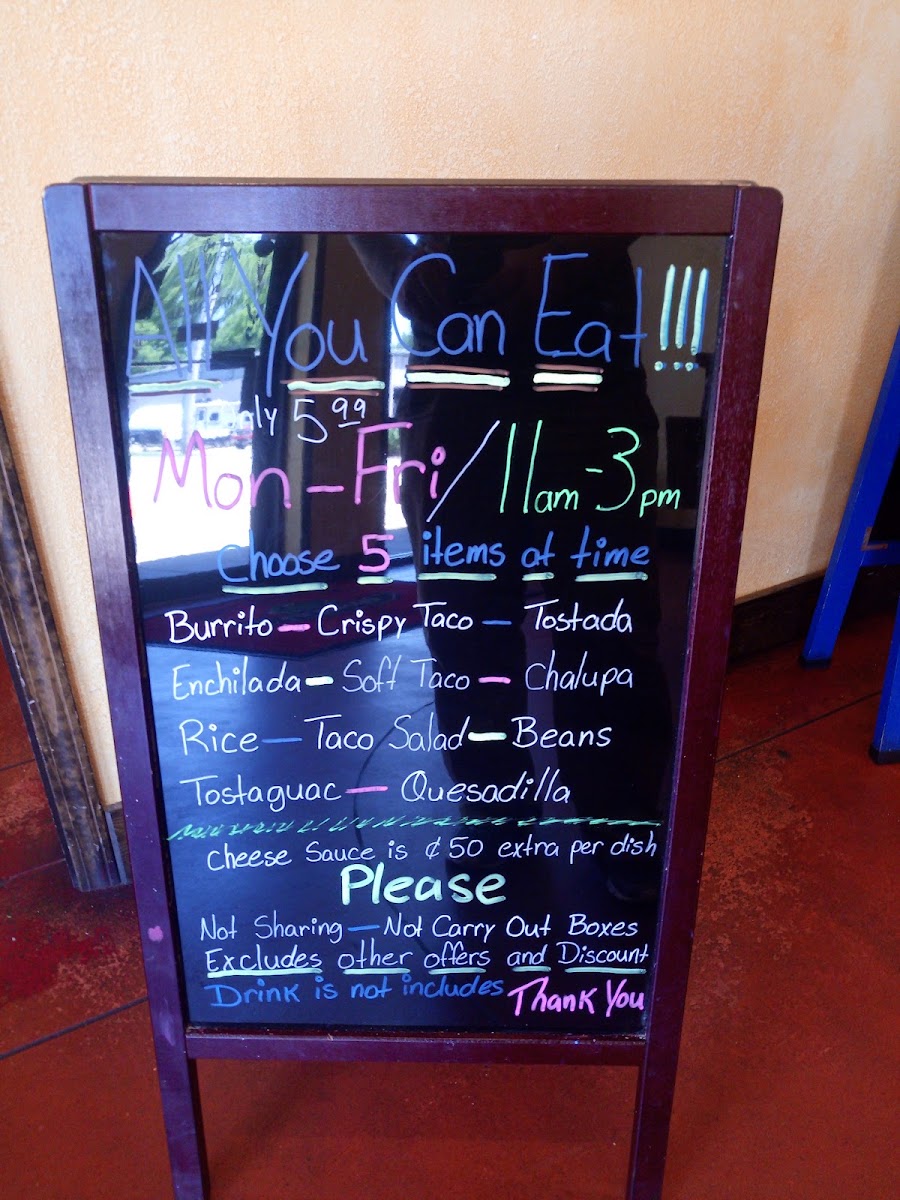 All You Can Eat!!!
only 5.99
Mon-Fri/11am-3pm
Choose 5 items at time
Burrito - Crispy Taco - Tostada
Enchilada - Soft Taco - Chalupa
Rice - Taco Salad - Beans
Tostaguac - Quesadilla
Cheese Sauce is ¢50 extra per dish
Please
Not Sharing - Not Carry Out Boxes
Excludes other offers and Discount
Drink is not includes Thank You